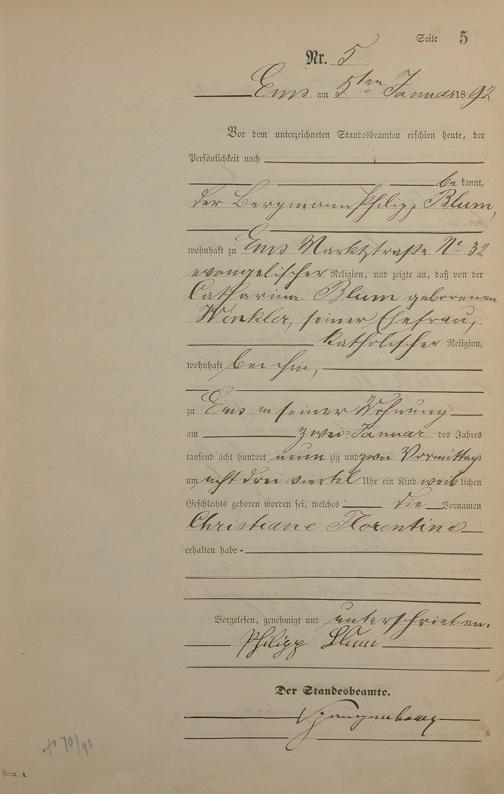 Seite 5
Nr. 5
Ems am 5ten Januar 1892
Vor dem unterzeichneten Standesbeamten erschien heute, der
Persönlichkeit nach
be kannt,
der Bergmann Philipp Blum,
wohnhaft zu Ems Marktstraße No 32
evangelischer Religion, und zeigte an, daß von der
Catharina Blum geborenen
Winkler, seiner Ehefrau,
katholischer Religion,
wohnhaft bei ihm,
zu Ems in seiner Wohnung
am zwei Januar des Jahres
tausend acht hundert neun zig und zwei Vormittags
um acht drei viertel Uhr ein Kind weib lichen
Geschlechts geboren worden sei, welches die Vornamen
Christiane Florentine
erhalten habe
Vorgelesen, genehmigt und unterschrieben.
Philipp Blum
Der Standesbeamte.
Form. A.